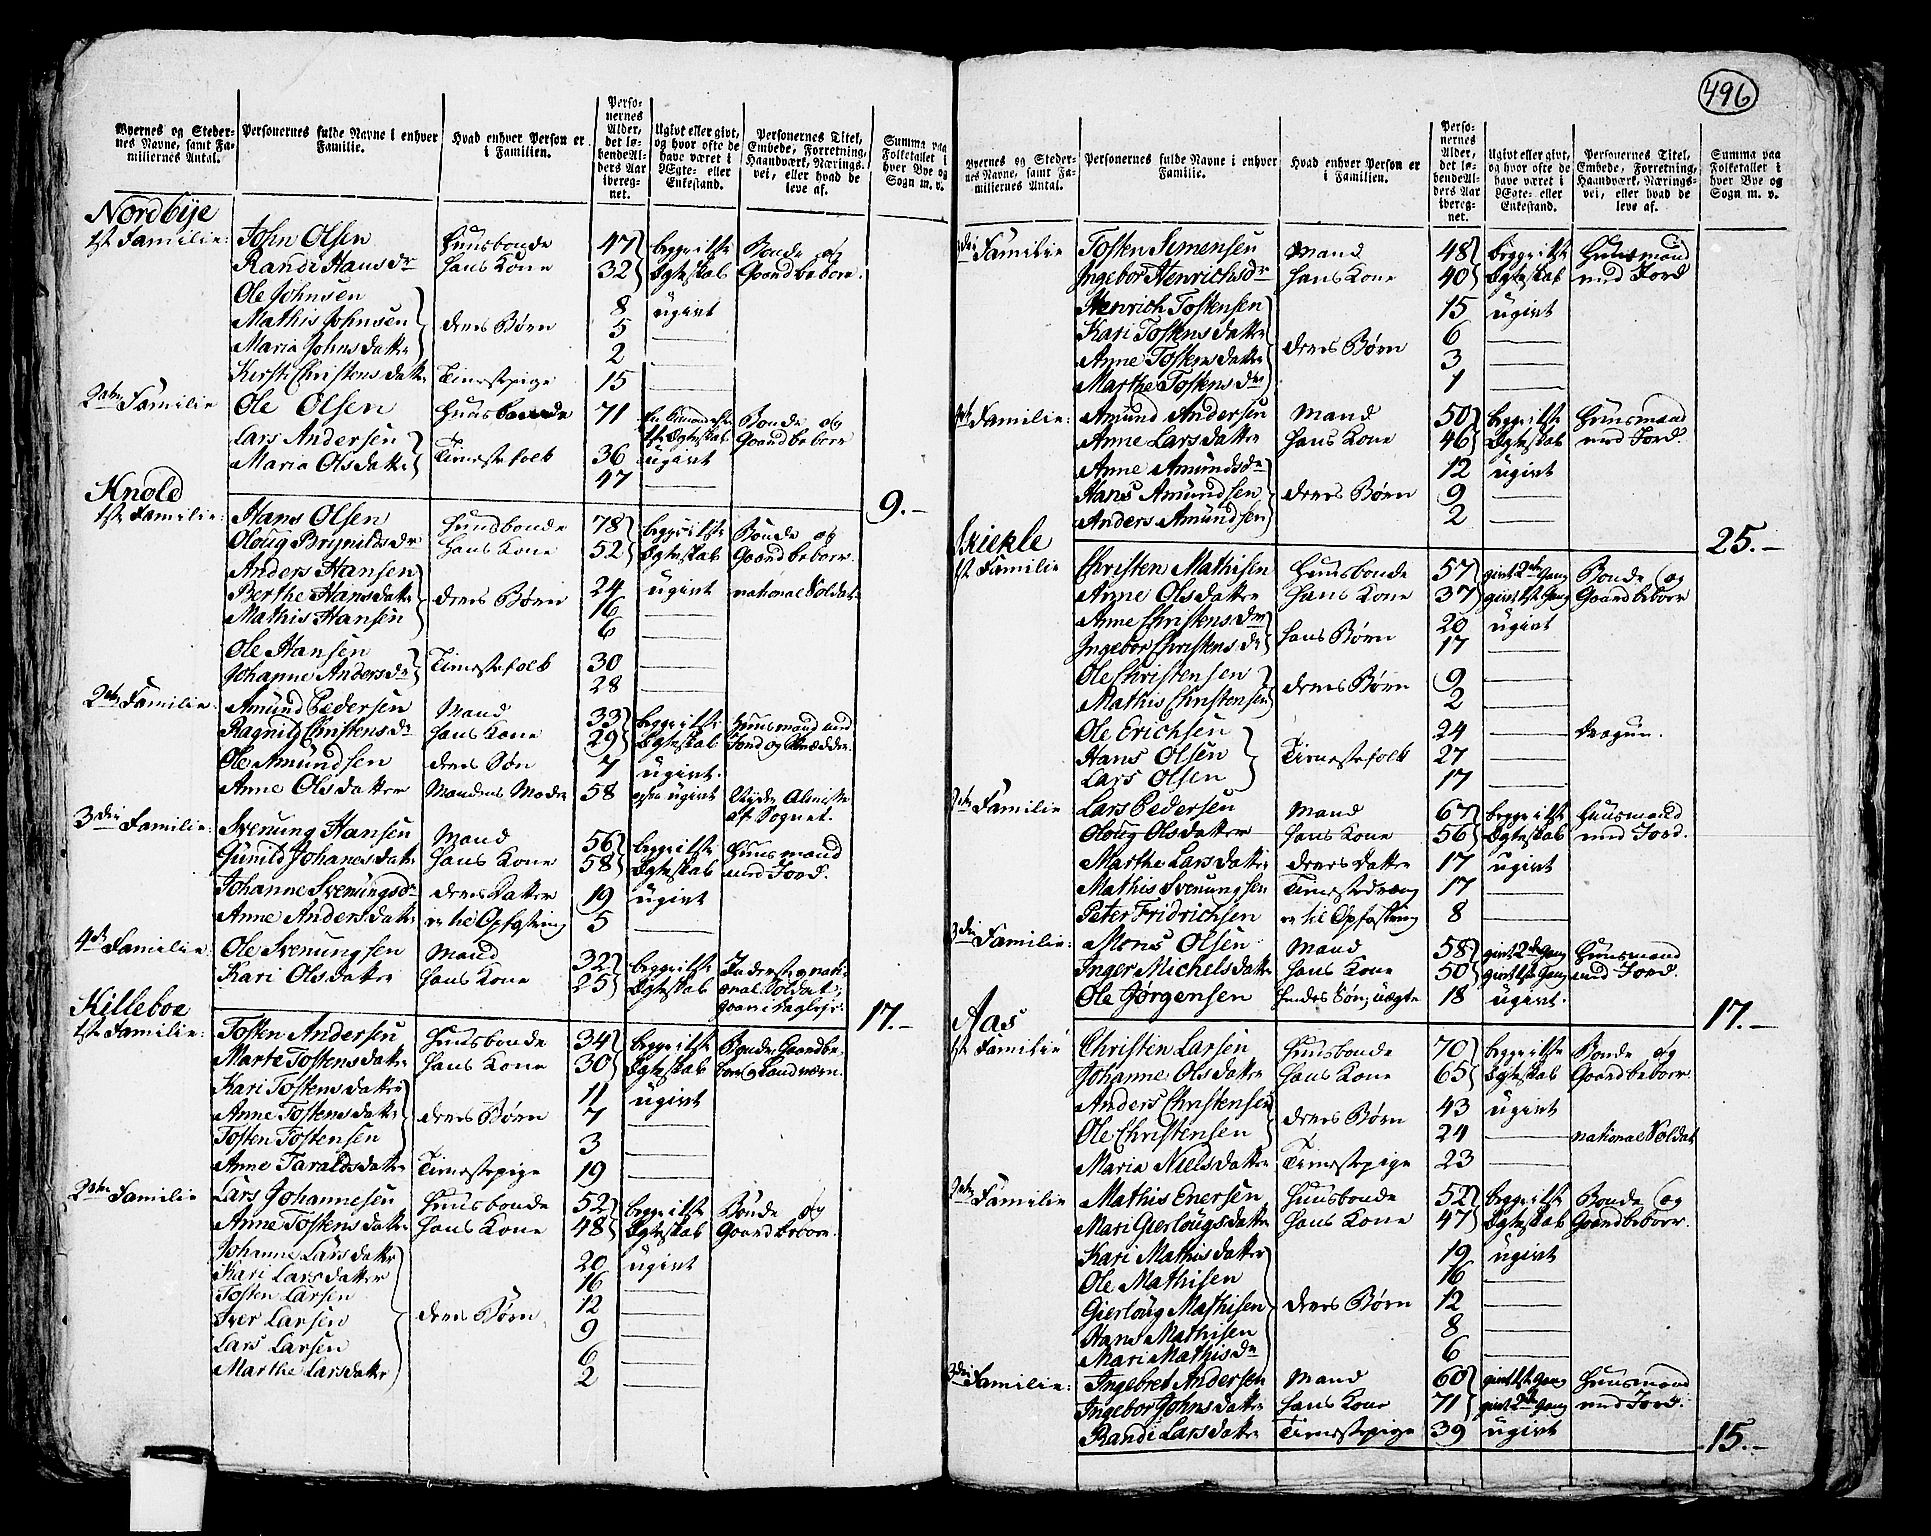 496
Byernes og Steder-
nes Navne, samt Fa-
miliernes Antal.
Personernes fulde Navne i enhver
Familie.
Hvad enhver Person er
i Familien.
Perso-
nernes
Alder,
det lø-
bende Al-
ders Aar
ibereg-
net.
Ugivt eller givt,
og hvor ofte de
have været i
Ægte- eller
Enkestand.
Personernes Titel,
Embede, Forretning,
Haandværk, Nærings-
vei, eller hvad de
leve af.
Summa paa
Folketallet i
hver Bye og
Sogn m. v.
Nordbye
1ste Familie: John Olsen Huusbonde 47 begge i 1ste Bonde og
Randi Hansdr hans Kone 32 Ægteskab Gaardbeboer.
Ole Johnsen 8 ugivt
Mathis Johnsen deres Børn 5
Maria Johnsdatter 2
Kirsti Christensdatter Tienestepige 15
2den Familie Ole Olsen Huusbonde 71 Bonde og
1ste Ægteskab Gaardbeboer
Lars Andersen Tienestefolk 36 ugivt
Maria Olsdatter 47
9.
Knold
1ste Familie: Hans Olsen Huusbonde 78 begge i 1ste Bonde og
Oloug Brynildsdr hans Kone 52 Ægteskab Gaardbeboer.
Anders Hansen 24 ugivt national Soldat
Berthe Hansdatter deres Børn 16
Mathis Hansen 6
Ole Hansen Tienestefolk 30
Johanne Andersdr 28
2den Familie: Amund Pedersen Mand 33 begge i 1ste Huusmand med
Ragnild Christensdr hans Kone 29 Ægteskab Jord og Skrædder.
Ole Amundsen deres Søn 7 ugivt.
Anne Olsdatter Mandens Moder 58 ugivt Nyder Almisse
af Sognet.
3die Familie: Svenung Hansen Mand 56 begge i 1ste Huusmand
Gunild Johanesdatter hans Kone 58 Ægteskab med Jord.
Johanne Svenungsdr deres Datter 19 ugivt
Anne Andersdatter er til Opfostring 5
4de Familie: Ole Svenungsen Mand 32 begge i 1ste Inderste nati-
Kari Olsdatter hans Kone 25 Ægteskab onal Soldat,
gaar i Dagleje.
17.
Killeboe
1ste Familie: Tosten Andersen Huusbonde 34 begge i 1ste Bonde, Gaardbe-
Marte Tostensdatter hans Kone 30 Ægteskab boer og Landværn.
Kari Tostensdatter 11 ugivt
Anne Tostensdatter deres Børn 7
Tosten Tostensen 3
Anne Taraldsdatter Tienestepige 19
2den Familie Lars Johannesen Huusbonde 52 begge i 1ste Bonde og
Anne Tostensdatter hans Kone 48 Ægteskab Gaardbeboer.
Johanne Larsdatter 20 ugivt
Kari Larsdatter 16
Tosten Larsen 12
Iver Larsen deres Børn 9
Lars Larsen 6
Marthe Larsdatter 2
Byernes og Steder-
nes Navne, samt Fa-
miliernes Antal.
Personernes fulde Navne i enhver
Familie.
Hvad enhver Person er
i Familien.
Perso-
nernes
Alder,
det lø-
bende Al-
ders Aar
ibereg-
net.
Ugivt eller givt,
og hvor ofte de
have været i
Ægte- eller
Enkestand.
Personernes Titel,
Embede, Forretning,
Haandværk, Nærings-
vei, eller hvad de
leve af.
Summa paa
Folketallet i
hver Bye og
Sogn m. v.
3die Familie Tosten Simensen Mand 48 begge i 1ste Huusmand
Ingebor Henrichsdr hans Kone 40 Ægteskab med Jord
Henrich Tostensen 15 ugivt
Kari Tostensdatter deres Børn 6
Anne Tostensdatter 3
Marthe Tostensdr 1
4de Familie: Amund Andersen Mand 50 begge i 1ste Huusmand
Anne Larsdatter hans Kone 46 Ægteskab med Jord.
Anne Amundsdr 12 ugivt
Hans Amundsen deres Børn 9
Anders Amundsen 2
25.
1ste Familie Christen Mathisen Huusbonde 57 givt 2den Gang Bonde og
Anne Olsdatter hans Kone 37 givt 1ste Gang Gaardbeboer
Anne Christensdr hans Børn 20 ugivt
Ingebor Christensdr 17
Ole Christensen deres Børn 9
Mathis Christensen 2
Ole Erichsen 24 Dragun.
Hans Olsen Tienestefolk 27
Lars Olsen 17
2den Familie Lars Pedersen Mand 67 begge i 1ste Huusmand
Oloug Olsdatter hans Kone 56 Ægteskab med Jord.
Marthe Larsdatter deres Datter 17 ugivt
Mathis Svenungsen Tienestedreng 17
Peter Fridrichsen er til Opfostring 8
3die Familie: Mons Olsen Mand 58 givt 2den Gang Huusmand
Inger Michelsdatter hans Kone 50 givt 1ste Gang med Jord.
Ole Jørgensen hendes Søn, uægte 18 ugivt.
17.
Aas
1ste Familie Christen Larsen Huusbonde 70 begge i 1ste Bonde og
Johanne Olsdatter hans Kone 65 Ægteskab Gaardbeboer.
Anders Christensen deres Børn 43 ugivt
Ole Christensen 24 national Soldat
Maria Nielsdatter Tienestepige 23
2den Familie Mathis Enersen Huusbonde 52 begge i 1ste Bonde og
Mari Gierlougsdatter hans Kone 47 Ægteskab Gaardbeboer.
Kari Mathisdatter 19 ugivt
Ole Mathisen 16
Gierloug Mathisen deres Børn 12
Hans Mathisen 8
Mari Mathisdr 6
3die Familie: Ingebret Andersen Mand 60 givt 1ste Gang Huusmand
Ingebor Johnsdatter hans Kone 71 givt 2den Gang med Jord.
Randi Larsdatter Tienestepige 39 ugivt
15.